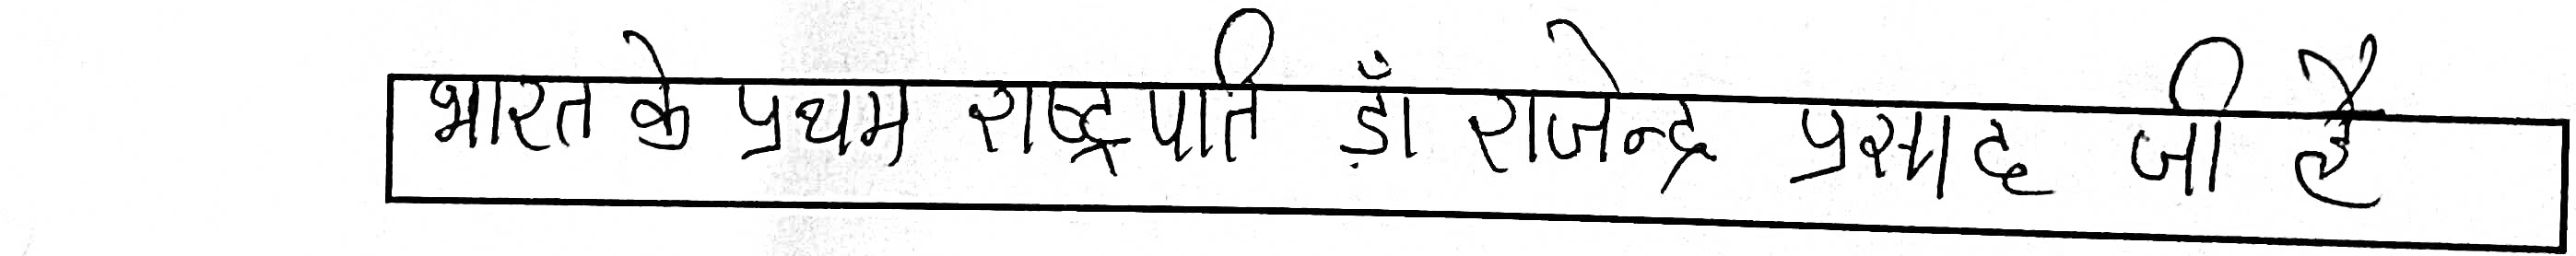 भारत के प्रथम राष्ट्रपति ड़ाँ राजेन्द्र प्रसाद जी है